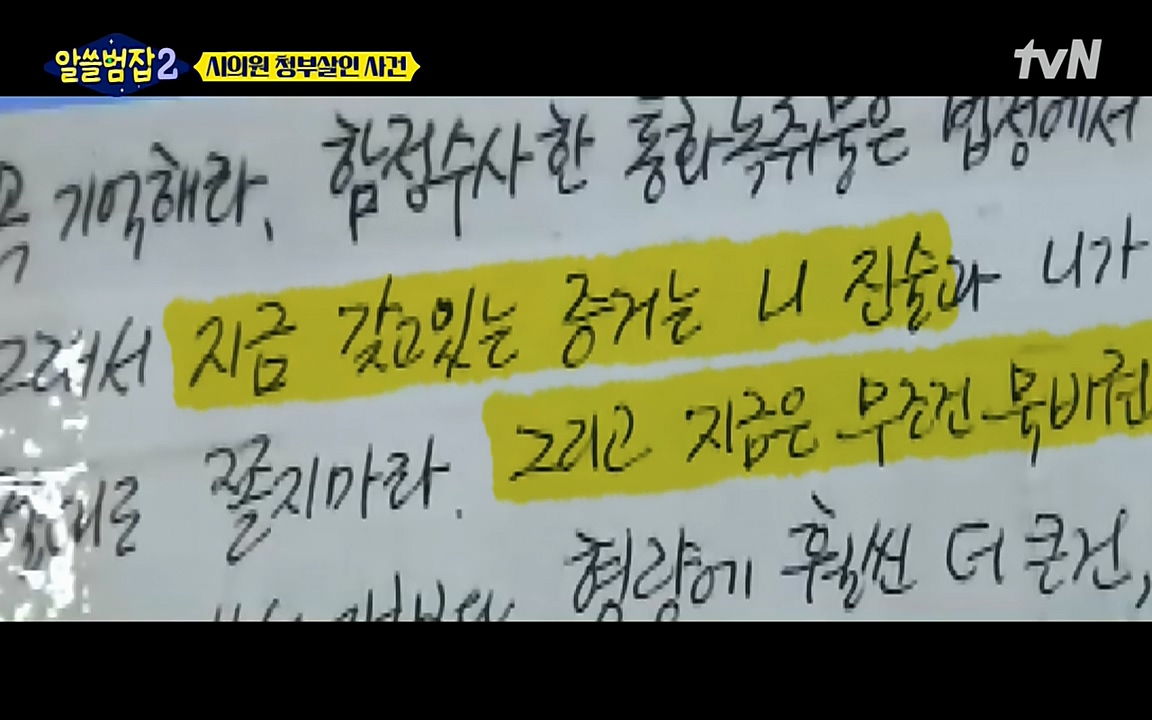 알쓸범잡2
시의원 청부살인 사건
tvN
기억해라. 함정수사한 통화녹취록은 법정에서
그래서 지금 갖고있는 증거는 니 진술과 니가
쫄지마라. 그리고 지금은 무조건 묵비권
형량에 훨씬 더 큰건,